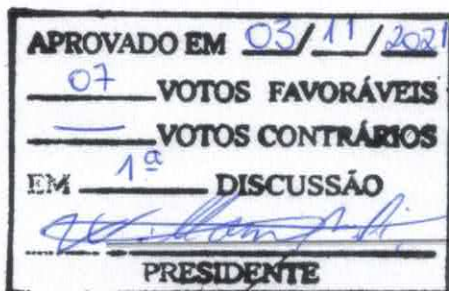 APROVADO EM 03/11/2021
07 VOTOS FAVORÁVEIS
— VOTOS CONTRÁRIOS
EM 1ª DISCUSSÃO
PRESIDENTE